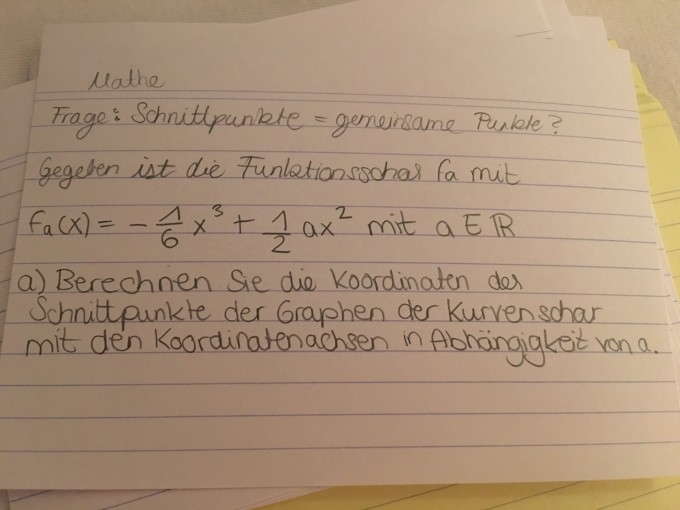 Mathe
Frage: Schnittpunkte = gemeinsame Punkte?
Gegeben ist die Funktionsschar fa mit
fa(x) = - 1/6 x³ + 1/2 ax² mit a ∈ ℝ
a) Berechnen Sie die Koordinaten der
Schnittpunkte der Graphen der Kurvenschar
mit den Koordinatenachsen in Abhängigkeit von a.